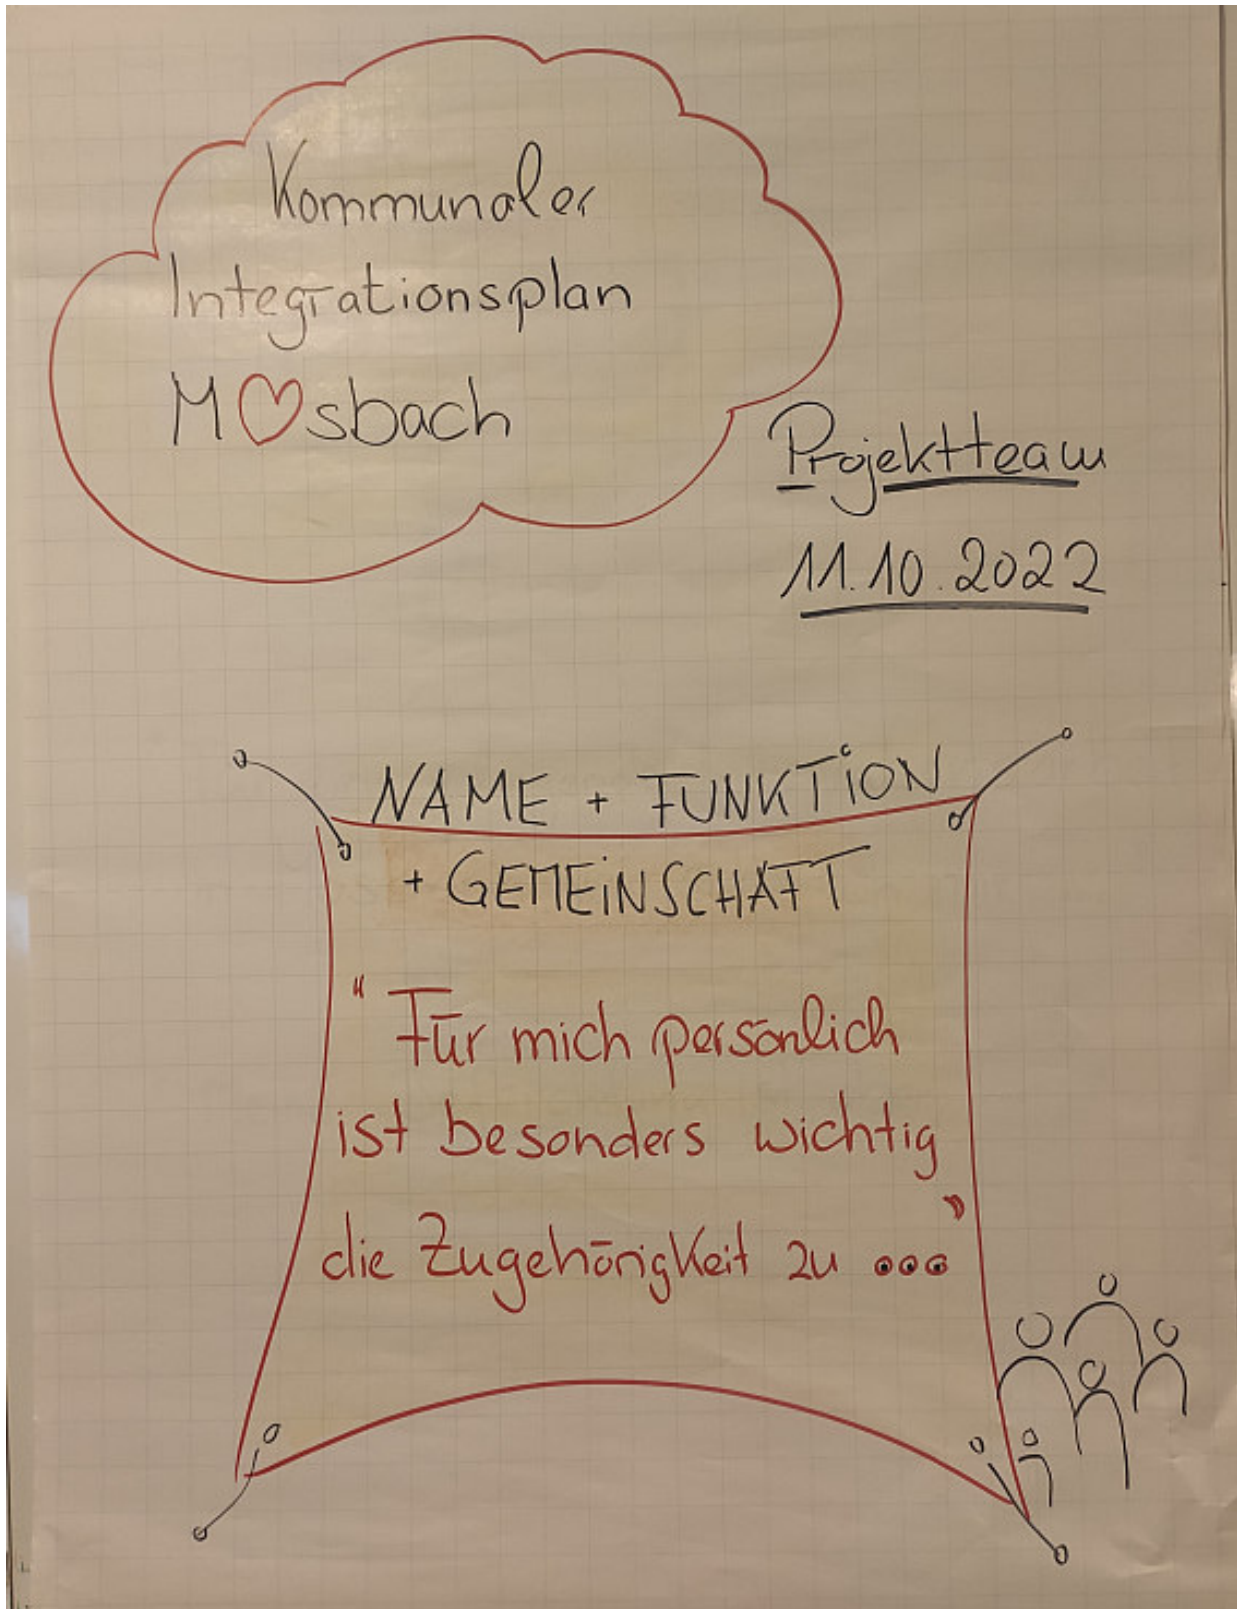 Kommunaler
Integrationsplan
M♡sbach
Projektteam
11.10.2022
NAME + FUNKTiON
+ GEMEiNSCHAFT
"Für mich persönlich
ist besonders wichtig
die Zugehörigkeit zu ..."